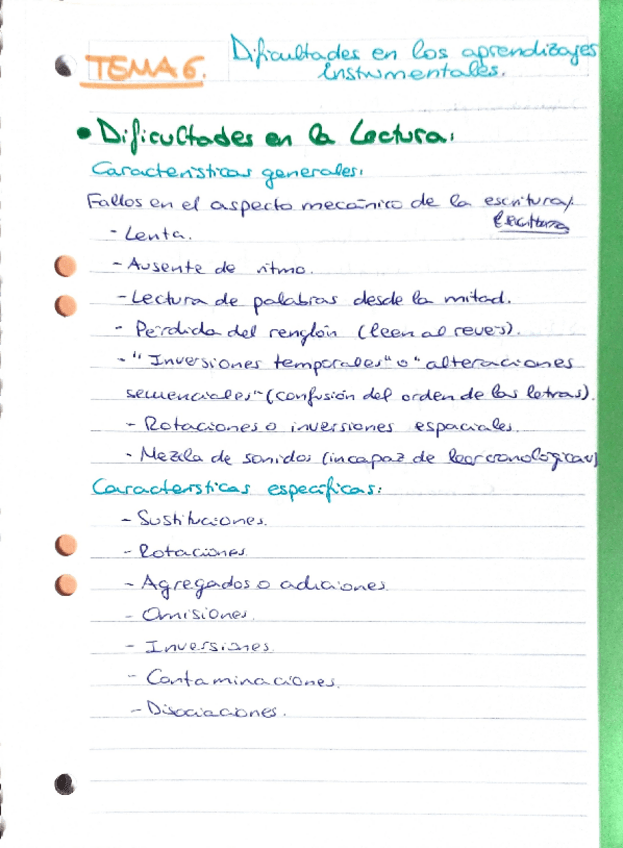 Dificultades en los aprendizajes
TEMA 6. instrumentales.
• Dificultades en la Lectura:
Características generales:
Fallos en el aspecto mecánico de la escritura/
Escritura
- Lenta.
- Ausente de ritmo.
- Lectura de palabras desde la mitad.
- Pérdida del renglón (leen al revés).
- "Inversiones temporales" o "alteraciones
secuenciales" (confusión del orden de las letras).
- Rotaciones o inversiones espaciales.
- Mezcla de sonidos (incapaz de leer
Características específicas:
- Sustituciones.
- Rotaciones.
- Agregados o adiciones.
- Omisiones.
- Inversiones.
- Contaminaciones.
- Disociaciones.